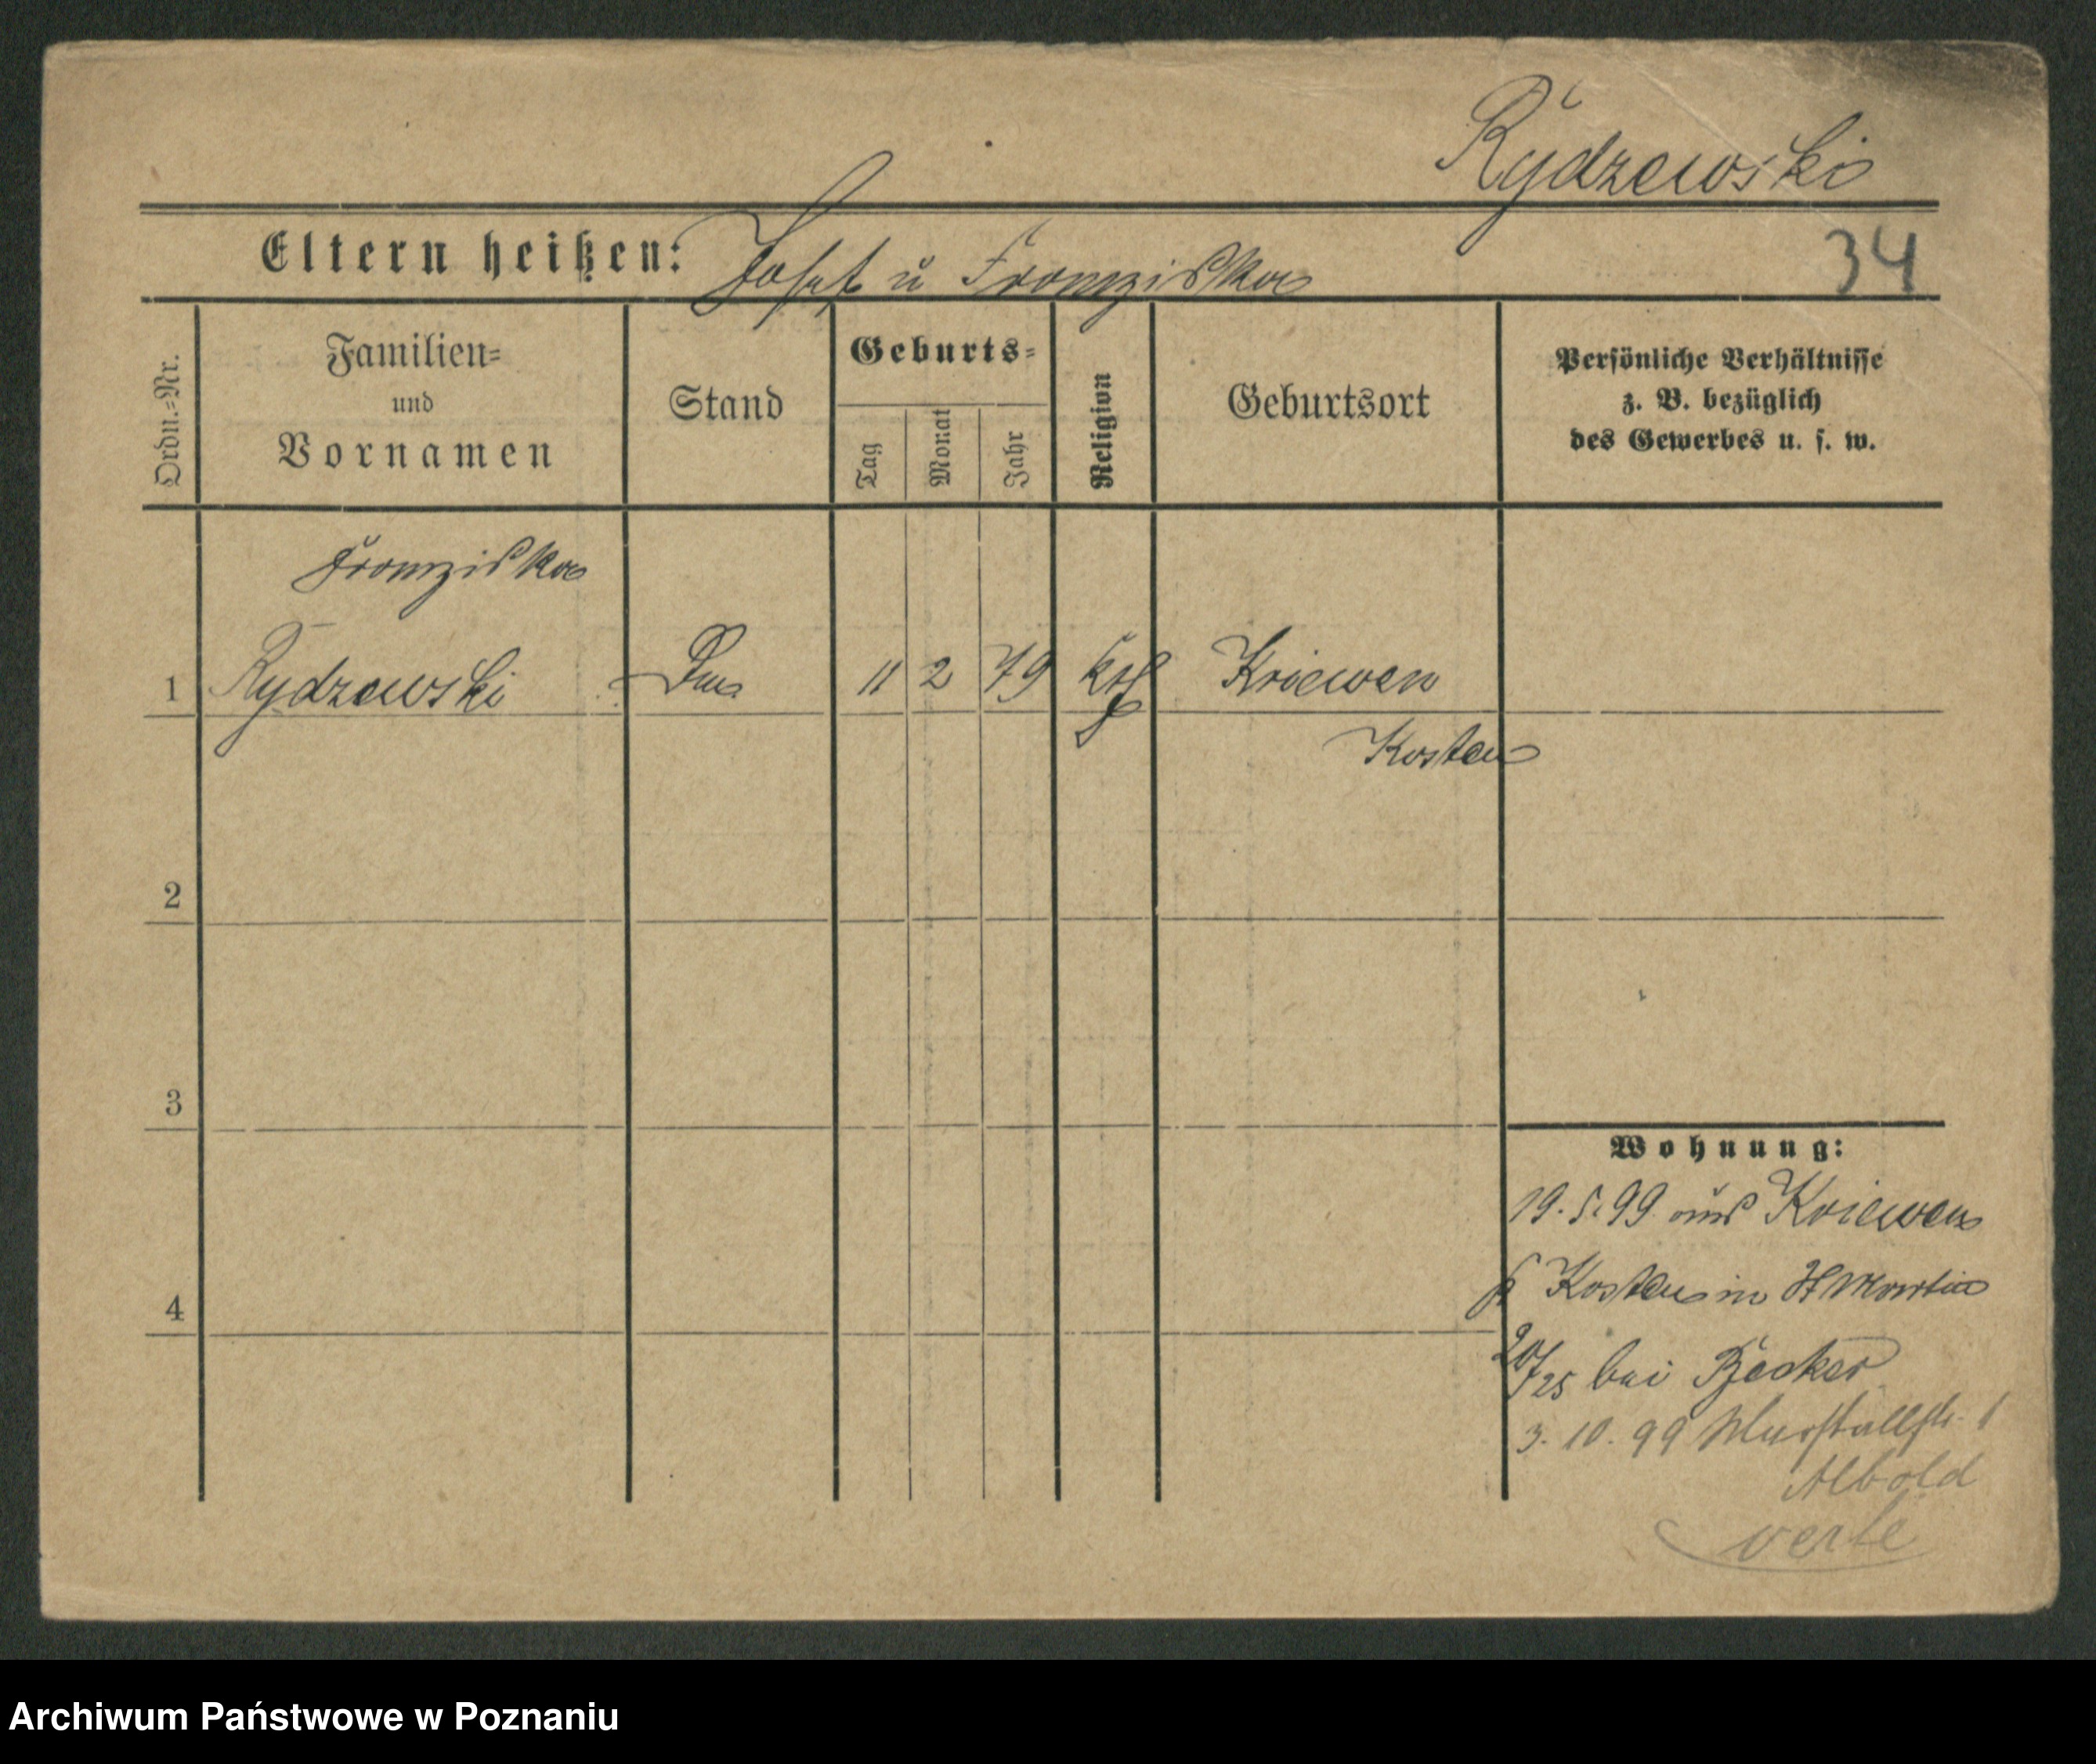 Rydzewski
Eltern heißen: Josef u Franziska
34
Ordn.=Nr.
Familien=
und
Vornamen
Stand
Geburts=
Tag
Monat
Jahr
Religion
Geburtsort
Persönliche Verhältnisse
z. B. bezüglich
des Gewerbes u. s. w.
Franziska
1 Rydzewski 11 2 79 Kriewen
Kosten
2
3
4
Wohnung:
19.5.99 aus Kriewen
Kosten in St Martin
bei Becker
3.10.99
Albold
Archiwum Państwowe w Poznaniu